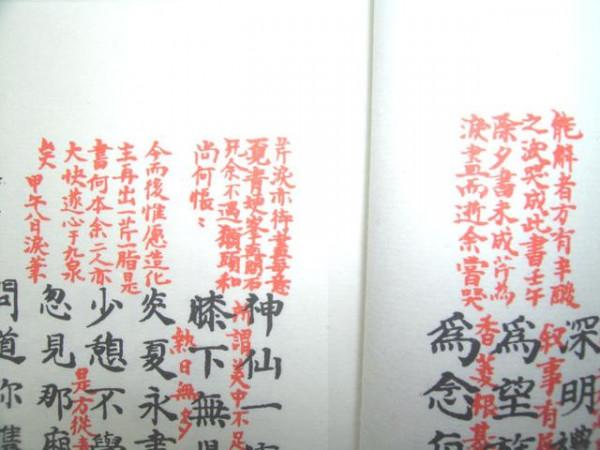 能解者方有辛酸
之淚哭成此書壬午
除夕書未成芹為
淚盡而逝余嘗哭
深明禮
叙事有
為望族
香菱根基
為念
芹淚亦待盡每意
覓青埂峯再問石
兄余不遇獺頭和
尚何悵々
今而後惟愿造化
主再出一芹一脂是
書何本余二人亦
大快遂心于九泉
矣 甲午八日淚筆
神仙一
所謂美中不足
膝下無
熱日無多
炎夏永晝
少憩不
是方從青
忽見那
問道你